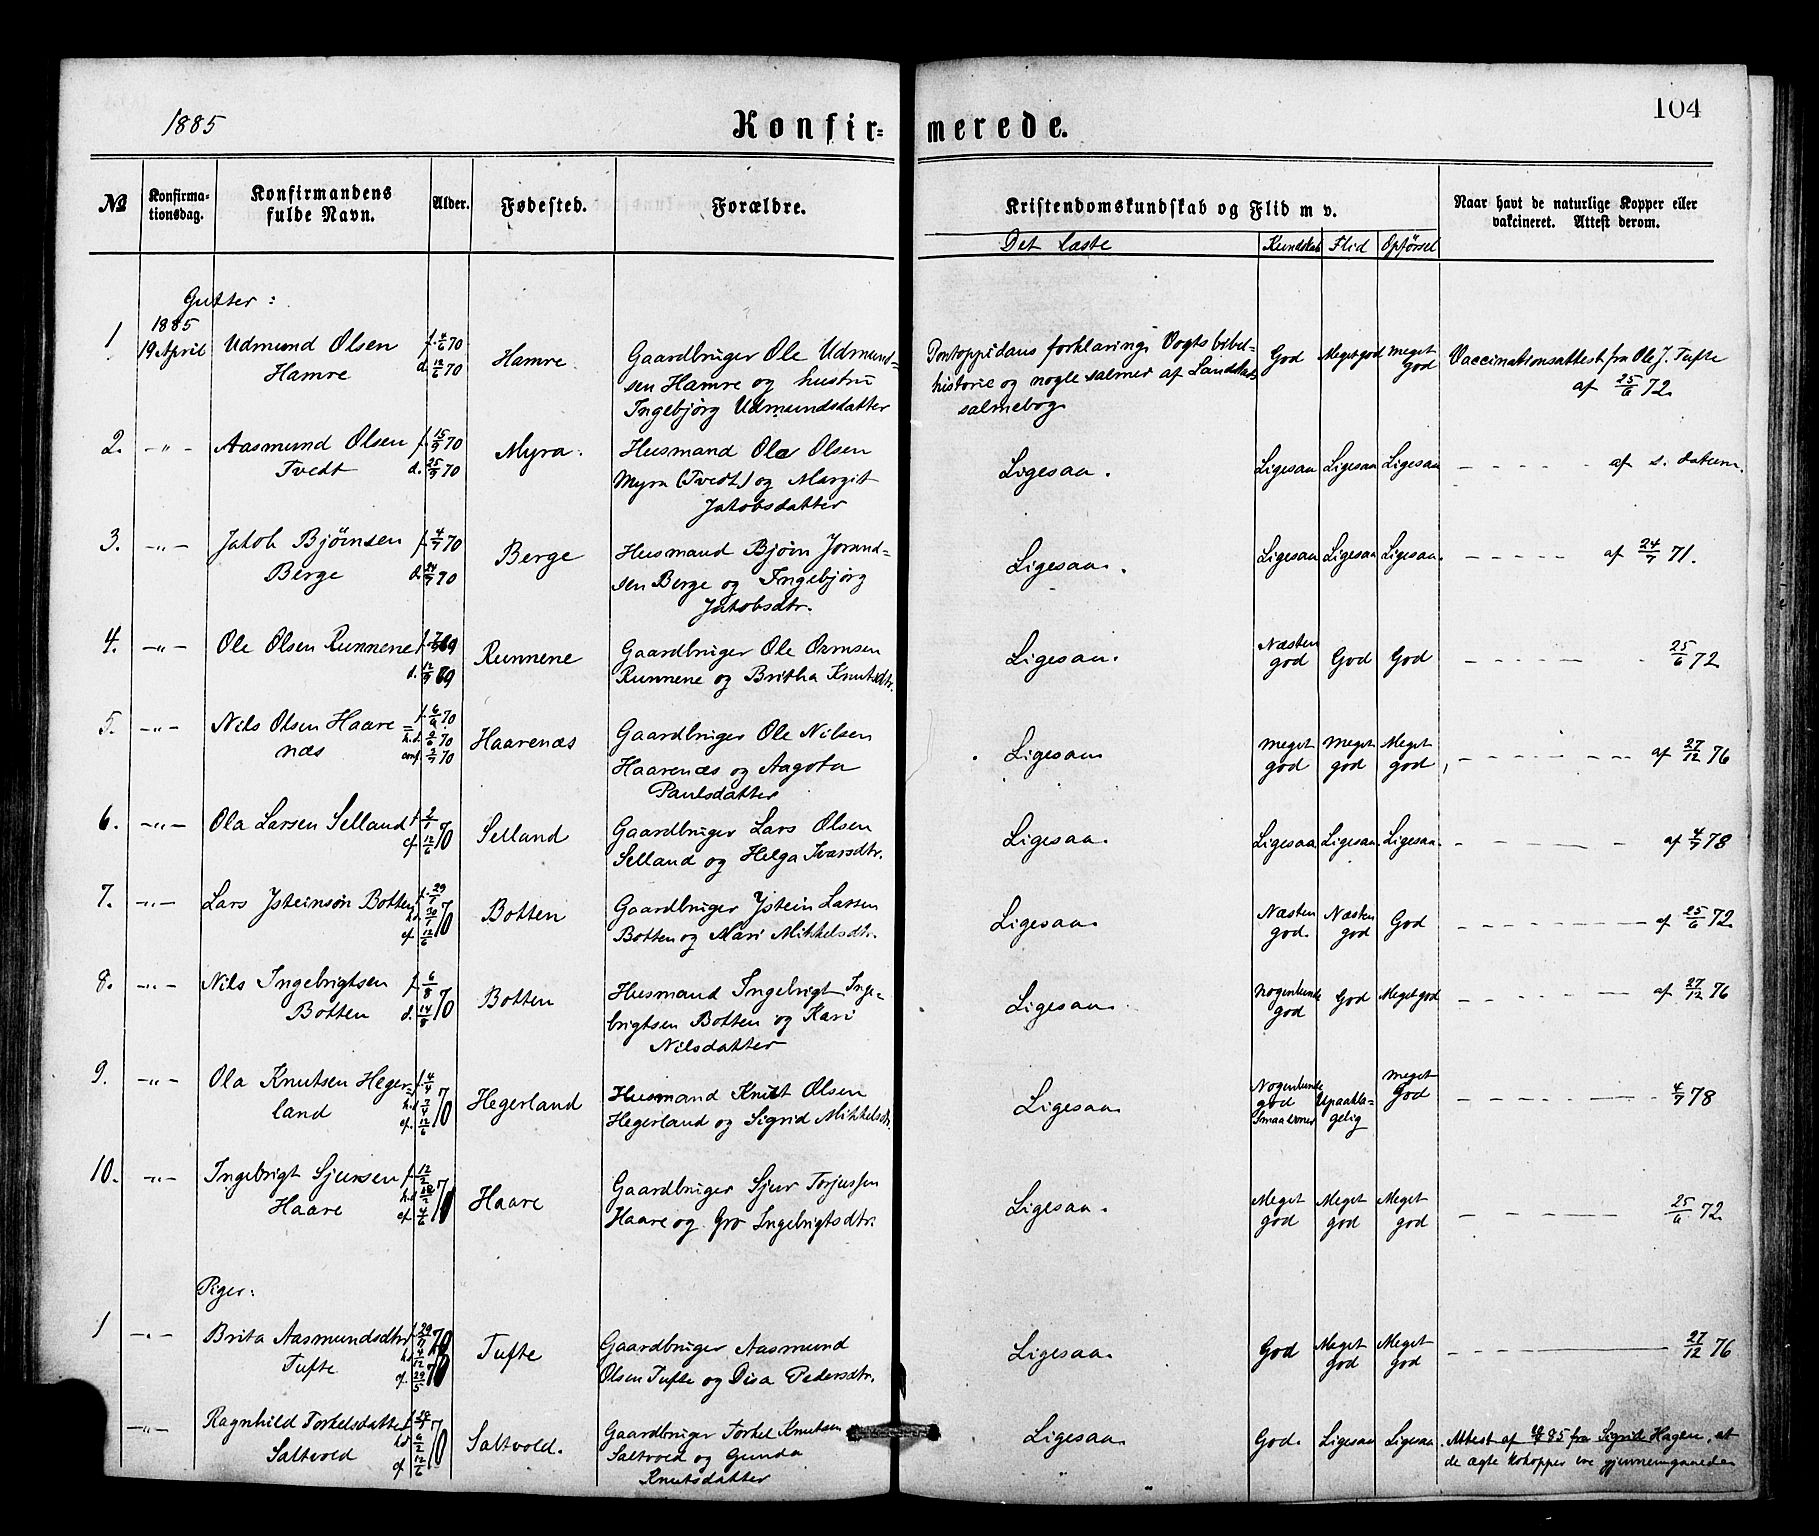 1885
Konfir-
merede.
104
No
Konfirma-
tionsdag.
Konfirmandens
fulde Navn.
Alder.
Fødested.
Forældre.
Kristendomskundskab og Flid m v.
Naar havt de naturlige Kopper eller
vakcineret. Attest derom.
Det læste
Kundskab
Flid
Opførsel
Gutter:
1 1885 19 April Udmund Olsen f. 4/6 70 Hamre Gaardbruger Ole Udmund- Pontoppidans forklaring, Vogts bibel- God Meget god Meget god Vaccinationsattest fra Ole J. Tufte
Hamre d. 12/6 70 sen Hamre og hustru historie og nogle salmer af Landstads af 25/6 72.
Ingebjørg Udmundsdatter salmebog
2. -"- Aasmund Olsen f. 15/9 70 Myra. Husmand Ola Olsen Ligesaa. Ligesaa Ligesaa Ligesaa - - - - - af s. datum.
Tvedt d. 25/9 70 Myra (Tvedt) og Margit
Jakobsdatter
3. -"- Jakob Bjørnsen f. 4/7 70 Berge Husmand Bjørn Jorand- Ligesaa. Ligesaa Ligesaa Ligesaa. - - - - - af 24/7 71.
Berge d. 24/7 70 sen Berge og Ingebjørg
Jakobsdtr.
4. -"- Ole Olsen Runnene f. 69 Runnene Gaardbruger Ole Ormsen Ligesaa. Næsten god God God - - - - - 25/6 72
d. 12/9 69 Runnene og Britha Knutsdtr.
5. -"- Nils Olsen Haare f. 6/6 70 Haarenæs Gaardbruger Ole Nilsen Ligesaa Meget god Meget god Meget god - - - - - af 27/12 76
næs h.d. 70 Haarenæs og Aagota
conf. 70 Paulsdatter
6. -"- Ola Larsen Selland f. Selland Gaardbruger Lars Olsen Ligesaa. Ligesaa Ligesaa Ligesaa. - - - - af 4/7 78
cf. 12/6 70 Selland og Helga Ivarsdtr.
7. -"- Lars Ysteinsøn Botten f. 29/1 Botten Gaardbruger Ystein Larsen Ligesaa. Næsten god. Næsten god God - - - - - af 25/6 72.
h.d. 30/1 70 Botten og Mari Mikkelsdtr.
cf. 12/6
8. -"- Nils Ingebrigtsen f. 6/8 Botten Husmand Ingebrigt Inge- Ligesaa. Nogenlunde god God Meget god - - - - - af 27/12 76
Botten d. 14/8 70 brigtsen Botten og Kari
Nilsdatter
9. -"- Ola Knutsen Heger- f. 4/4 Hegerland Husmand Knut Olsen Ligesaa. Nogenlunde god Smaa evner Upaakla- gelig Meget God - - - - - 4/7 78
land h.d. 7/4 70 Hegerland og Sigrid Mikkelsdtr.
cf. 12/6
10. -"- Ingebrigt Sjursen f. 12/2 Haare Gaardbruger Sjur Torjussen Ligesaa. Meget god Meget god Meget god - - - - 25/6 72
Haare h.d 70 Haare og Gro Ingebrigtsdtr.
cf. 4/6
Piger:
1 -"- Brita Aasmundsdtr f. 29/ Tufte Gaardbruger Aasmund Ligesaa. God Meget god Meget god - - - - 27/12 76
Tufte h.d 4/12 70 Olsen Tufte og Disa Pedersdtr.
cf. 29/5
-"- Ragnhild Torkelsdatter f. Saltvold. Gaardbruger Torkel Knutsen Ligesaa. God. Ligesaa Ligesaa Attest af 85 fra Sigrid Hagen, at
Saltvold h.d 6/2 70 Saltvold og Gunda de ægte kokopper ere gjennemgaaede
cf. 12/6 Knutsdatter